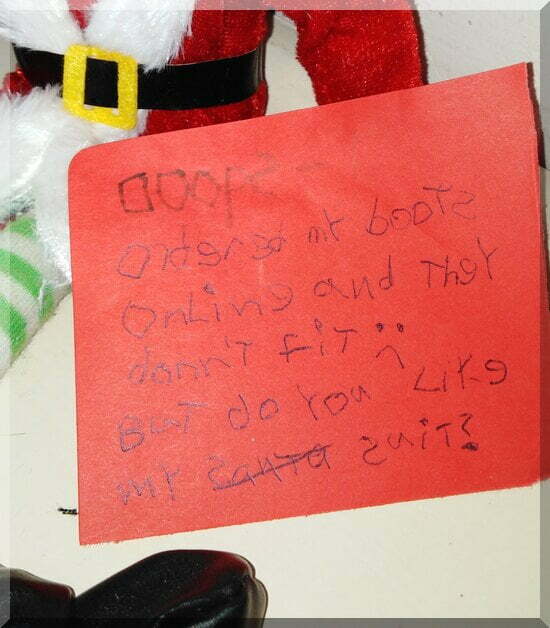 OOOPS -
Ordered my boots
Online and they
donn't fit :(
But do you like
my santa suit?